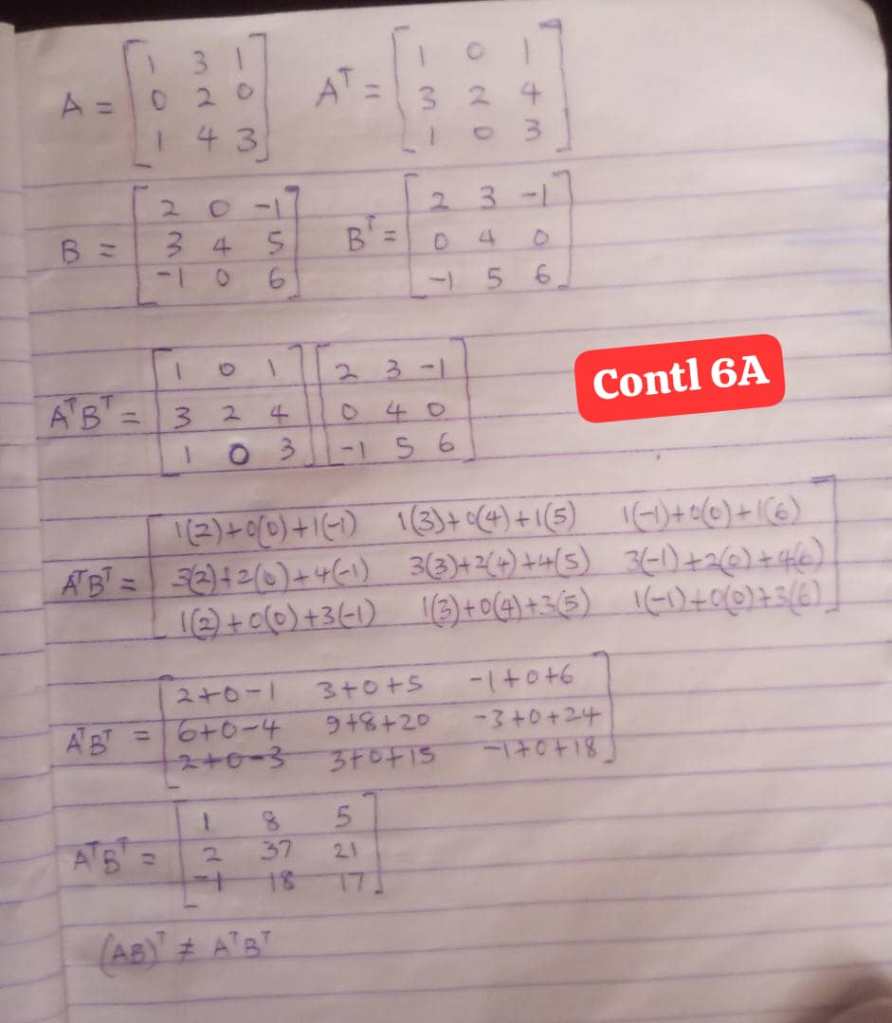 A = [1 3 1 Aᵀ = [1 0 1
0 2 0 3 2 4
1 4 3] 1 0 3]
B = [2 0 -1 Bᵀ = [2 3 -1
3 4 5 0 4 0
-1 0 6] -1 5 6]
AᵀBᵀ = [1 0 1 [2 3 -1
3 2 4 0 4 0
1 0 3] -1 5 6]
Contl 6A
AᵀBᵀ = [1(2)+0(0)+1(-1) 1(3)+0(4)+1(5) 1(-1)+0(0)+1(6)
3(2)+2(0)+4(-1) 3(3)+2(4)+4(5) 3(-1)+2(0)+4(6)
1(2)+0(0)+3(-1) 1(3)+0(4)+3(5) 1(-1)+0(0)+3(6)]
AᵀBᵀ = [2+0-1 3+0+5 -1+0+6
6+0-4 9+8+20 -3+0+24
2+0-3 3+0+15 -1+0+18]
AᵀBᵀ = [1 8 5
2 37 21
-1 18 17]
(AB)ᵀ ≠ AᵀBᵀ